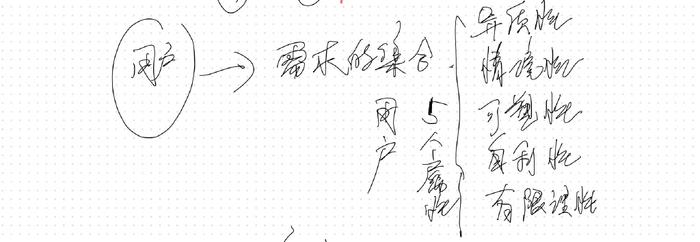 用户 → 需求的集合
用户
5个属性
异质性
情境性
可塑性
自利性
有限理性